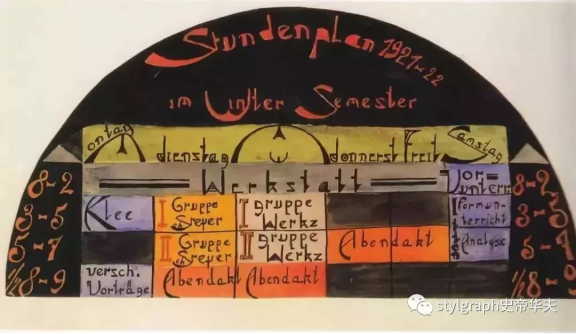 Stundenplan 1921-22
im Winter Semester
Montag dienstag donnerst Freit Samstag
8-2 Werkstatt Vor- 8-2
unterr
3-5 Klee I Gruppe I gruppe Formun- 3-5
Sreyer Werkz terricht
5-7 II Gruppe II gruppe Abendakt Analyse 5-7
Sreyer Werkz
½8-9 versch. Abendakt Abendakt ½8-9
Vorträge
stylgraph史帝华夫